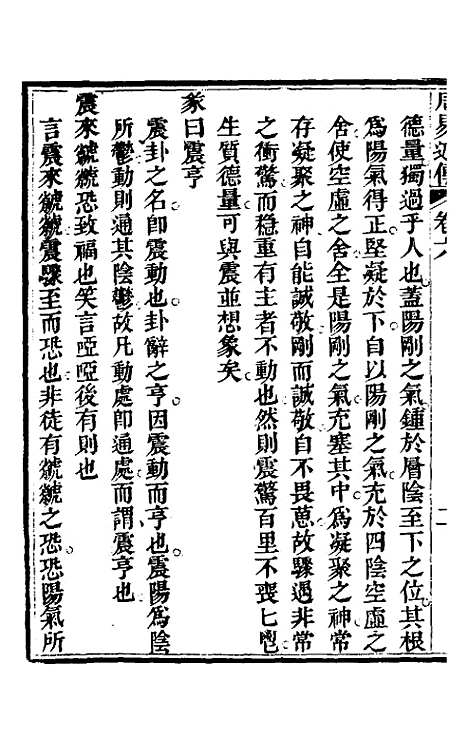 周易通傳 卷六 二
德量獨過乎人也蓋陽剛之氣鍾於層陰至下之位其根
爲陽氣得正堅凝於下自以陽剛之氣充於四陰空虛之
舍使空虛之舍全是陽剛之氣充塞其中爲凝聚之神常
存凝聚之神自能誠敬剛而誠敬自不畏葸故驟遇非常
之衝驚而穩重有主者不動也然則震驚百里不喪匕鬯
生質德量可與震並想象矣
彖曰震亨
震卦之名卽震動也卦辭之亨因震動而亨也震陽爲陰
所鬱動則通其陰鬱故凡動處卽通處而謂震亨也
震來虩虩恐致福也笑言啞啞後有則也
言震來虩虩震驟至而恐也非徒有虩虩之恐恐陽氣所